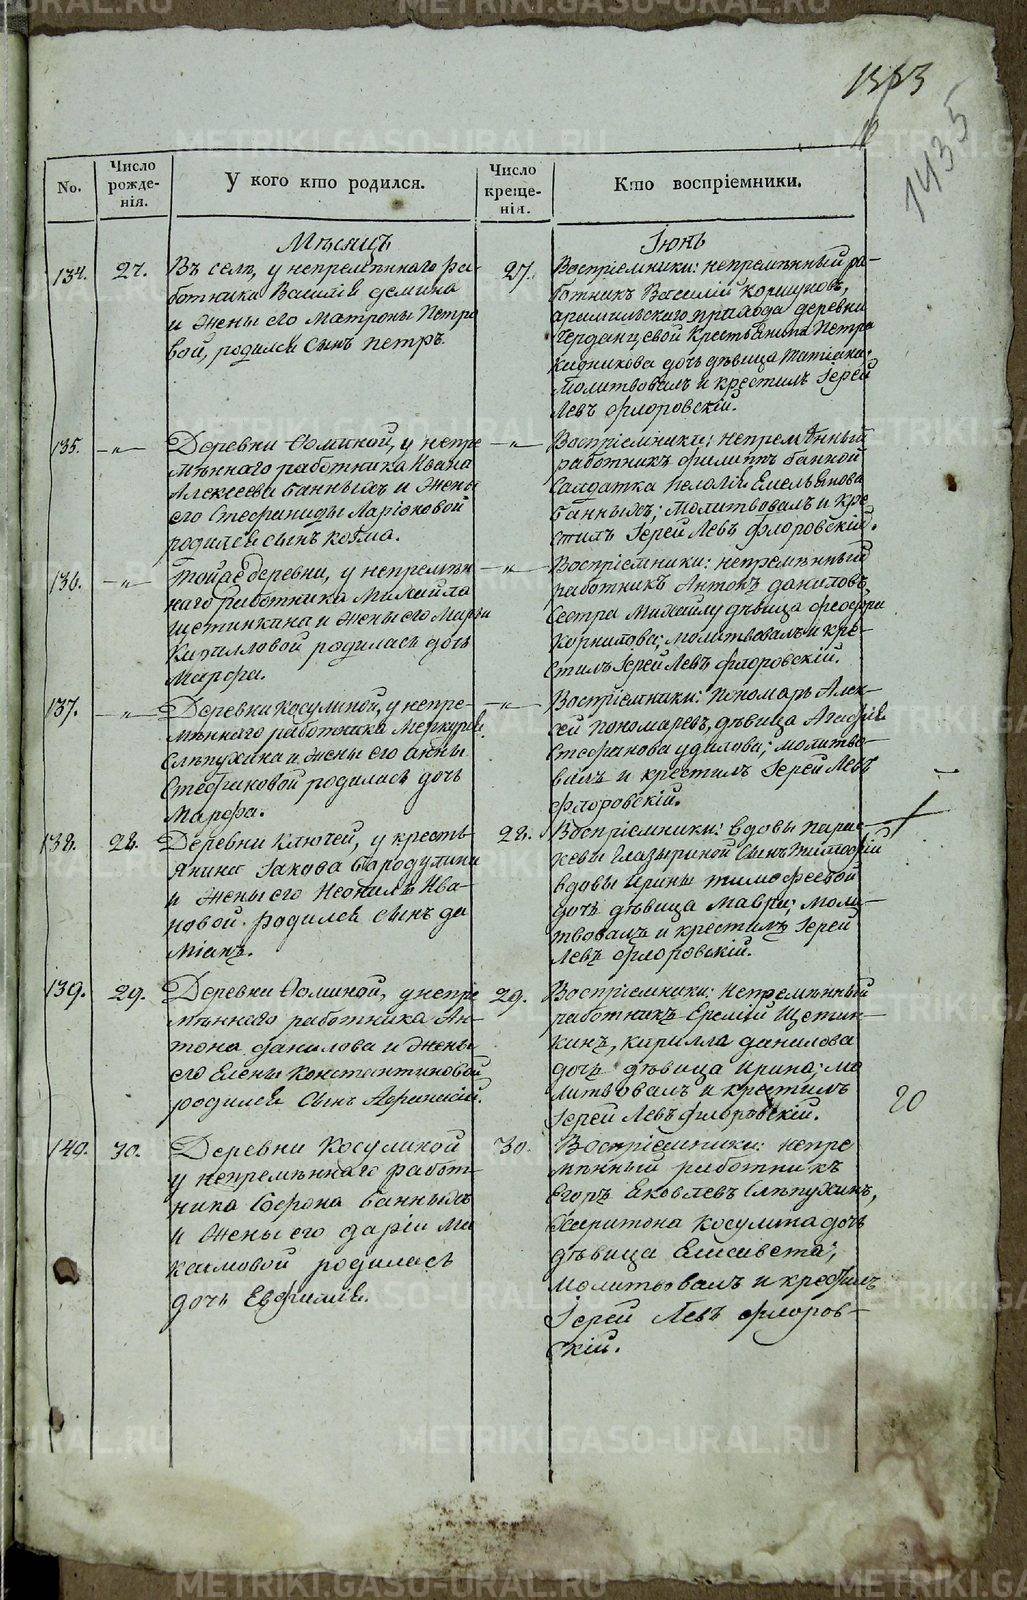 1313
10
1435
No.
Число рожде-нія.
У кого кто родился.
Число креще-нія.
Кто воспріемники.
Мѣсяцъ
Іюнь
134.
27.
Въ селѣ, у непремѣннаго ра-
ботника Василія демина
и жены его Матроны Петро
вой, родился сынъ петръ.
27.
Воспріемники: непремѣнный ра-
ботникъ Василій Коршуновъ,
арамильскаго прихода деревни
Черданцевой Крестьянина Петра
Кадникова дочь дѣвица Татіана;
молитвовалъ и крестилъ Іерей
Левъ флоровскій.
135.
—„—
Деревни Ѳоминой, у непре
мѣннаго работника Ивана
Алексеева банныхъ и жены
его Стефаниды Ларіоновой
родился сынъ козма.
—„—
Воспріемники: непремѣнный
работникъ филиппъ банной
Салдатка Пелагія Емельянова
банныхъ; молитвовалъ и кре
стилъ Іерей Левъ флоровскій.
136.
—„—
Той же деревни, у непремѣн
наго работника Михайла
щетинкина и жены его Марьи
Кирилловой родилась дочь
Марфа.
—„—
Воспріемники: непремѣнный
работникъ Антонъ даниловъ,
Сестра Михайлу дѣвица
Корнилова; молитвовалъ и кре-
стилъ Іерей Левъ флоровскій.
137.
—„—
Деревни Косулиной, у непре-
мѣннаго работника Меркурія
Слѣпухина и жены его анны
Стефановой родилась дочь
Марфа.
—„—
Воспріемники: Пономарь Алек-
сей Пономаревъ, дѣвица Агафія
Стефанова удилова; молитво-
валъ и крестилъ Іерей Левъ
флоровскій.
138.
28.
Деревни Ключей, у кресть
янина Іакова бородулина
и жены его Неонилы Ива-
новой родился сынъ да
міанъ.
28.
Воспріемники: вдовы парас-
кевы Глазыриной сынъ Тимофей
вдовы ирины тимофеевой
дочь дѣвица мавра; моли-
твовалъ и крестилъ Іерей
Левъ флоровскій.
139.
29.
Деревни Ѳоминой, у непре
мѣннаго работника Ан-
тона данилова и жены
его Елены Константиновой
родился сынъ
29.
Воспріемники: Непремѣнный
работникъ Еремѣй Щетин-
кинъ, кирилла данилова
дочь дѣвица ирина; мо
литвовалъ и крестилъ
Іерей Левъ флоровскій.
20
140.
30.
Деревни Косулиной
у непремѣннаго работ-
ника Софрона банныхъ
и жены его даріи Ма
каимовой родилась
дочь Евфимія.
30.
Воспріемники: непре
мѣнный работникъ
Егоръ Яковлевъ Слѣпухинъ,
Харитона Косулина дочь
дѣвица Елисавета;
молитвовалъ и крестилъ
Іерей Левъ флоров-
скій.
METRIKI.GASO-URAL.RU